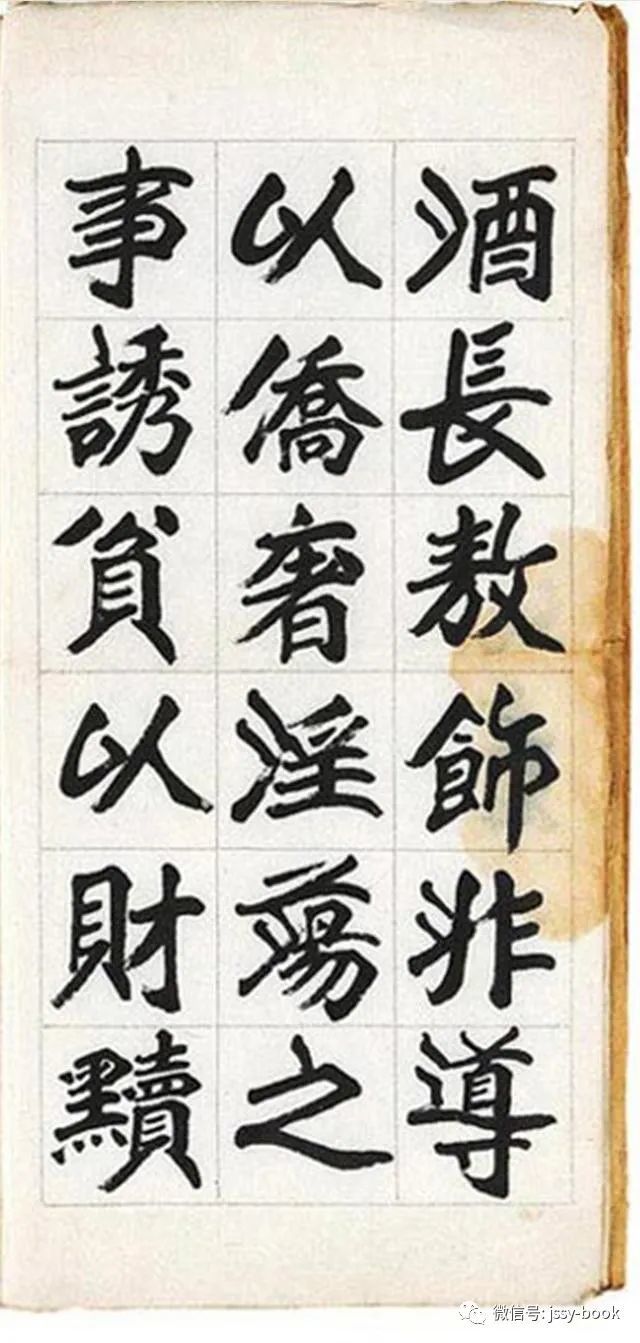 酒長敖飾非導
以僑奢淫蕩之
事誘貧以財黷
微信号: jssy-book